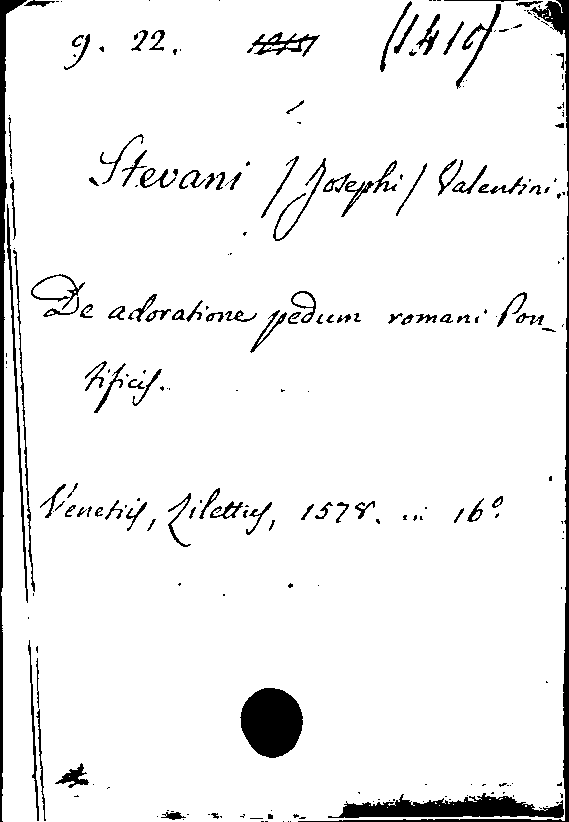 g. 22. (1410)
Stevani / Josephi / Valentini.
De adoratione pedum romani Pon_
tificis.
Venetiis, Zilettus, 1578. in 16º.